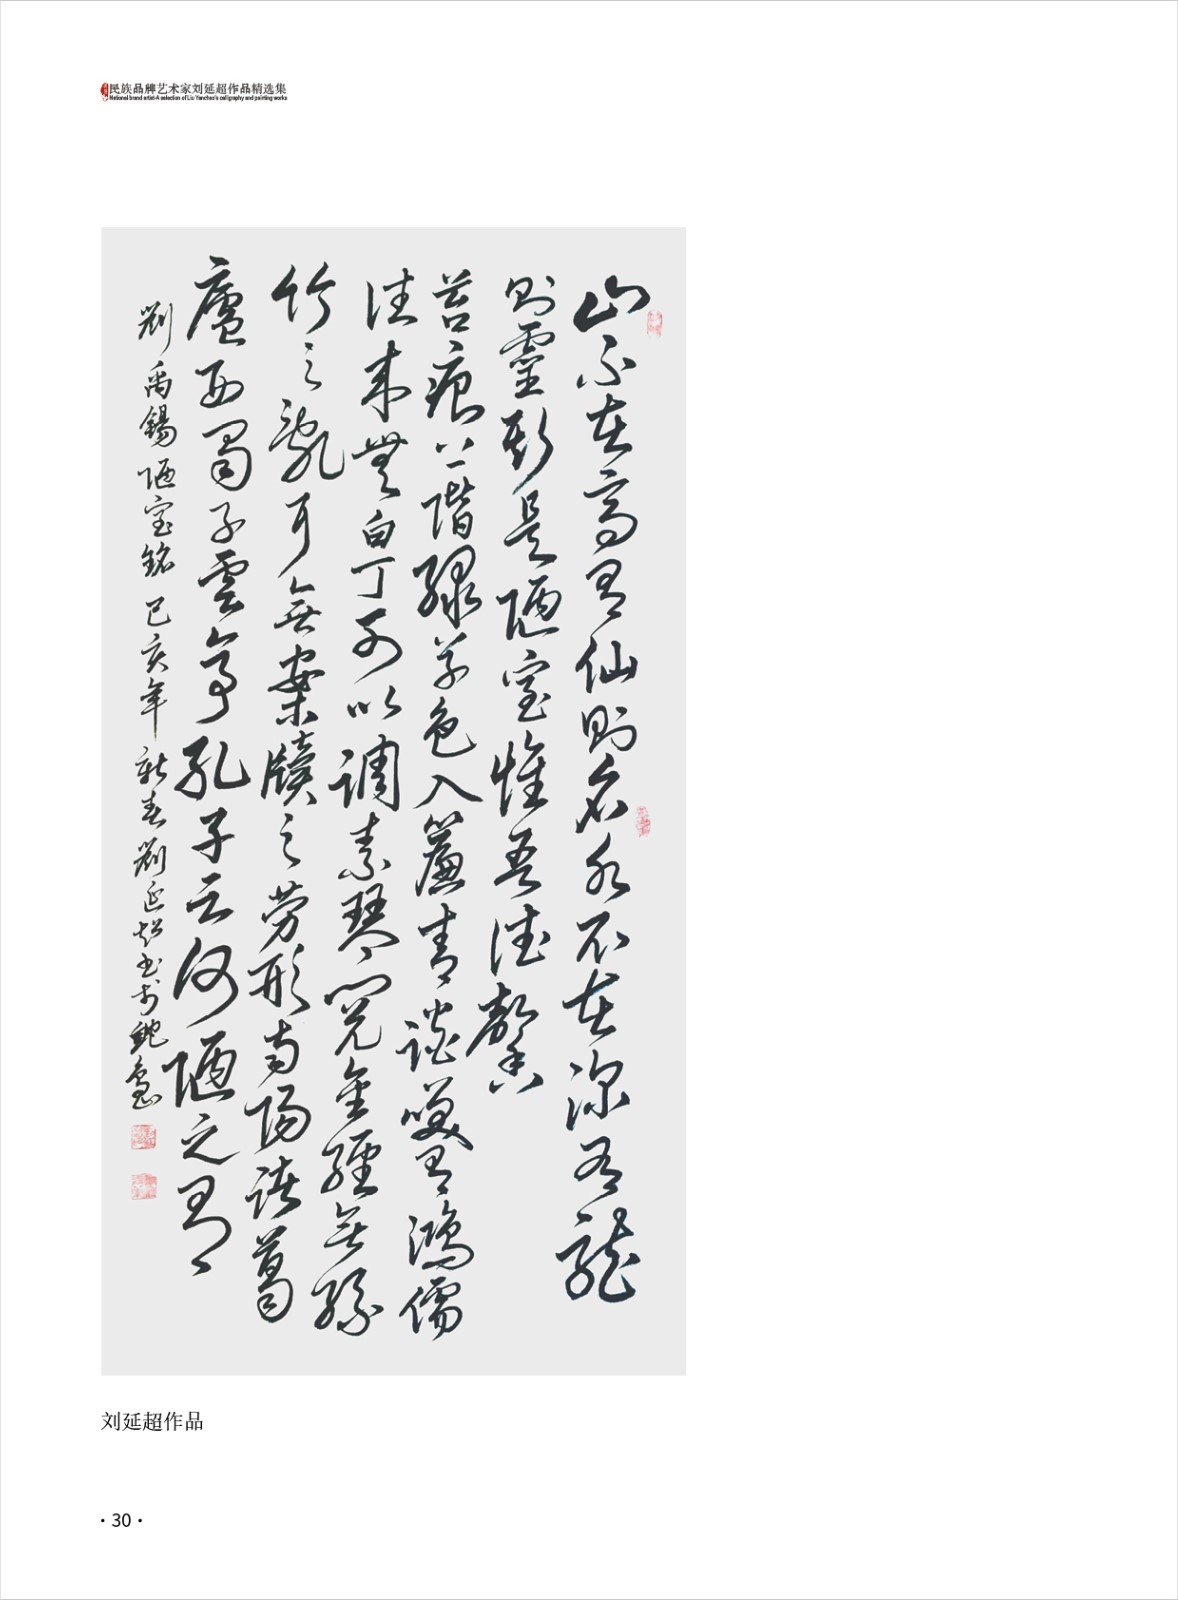 民族品牌艺术家刘延超作品精选集
National brand artist-A selection of Liu Yanchao's calligraphy and painting works
山不在高有仙則名水不在深有龍
則靈斯是陋室惟吾德馨
苔痕上階緑草色入簾青談笑有鴻儒
往来無白丁可以調素琴閲金經無絲
竹之亂耳無案牘之勞形南陽諸葛
廬西蜀子雲亭孔子云何陋之有
劉禹錫陋室銘 己亥年新春劉延超书於
刘延超作品
·30·